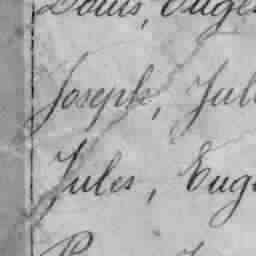 Louis, Euge
Joseph, Jul
Jules, Euge